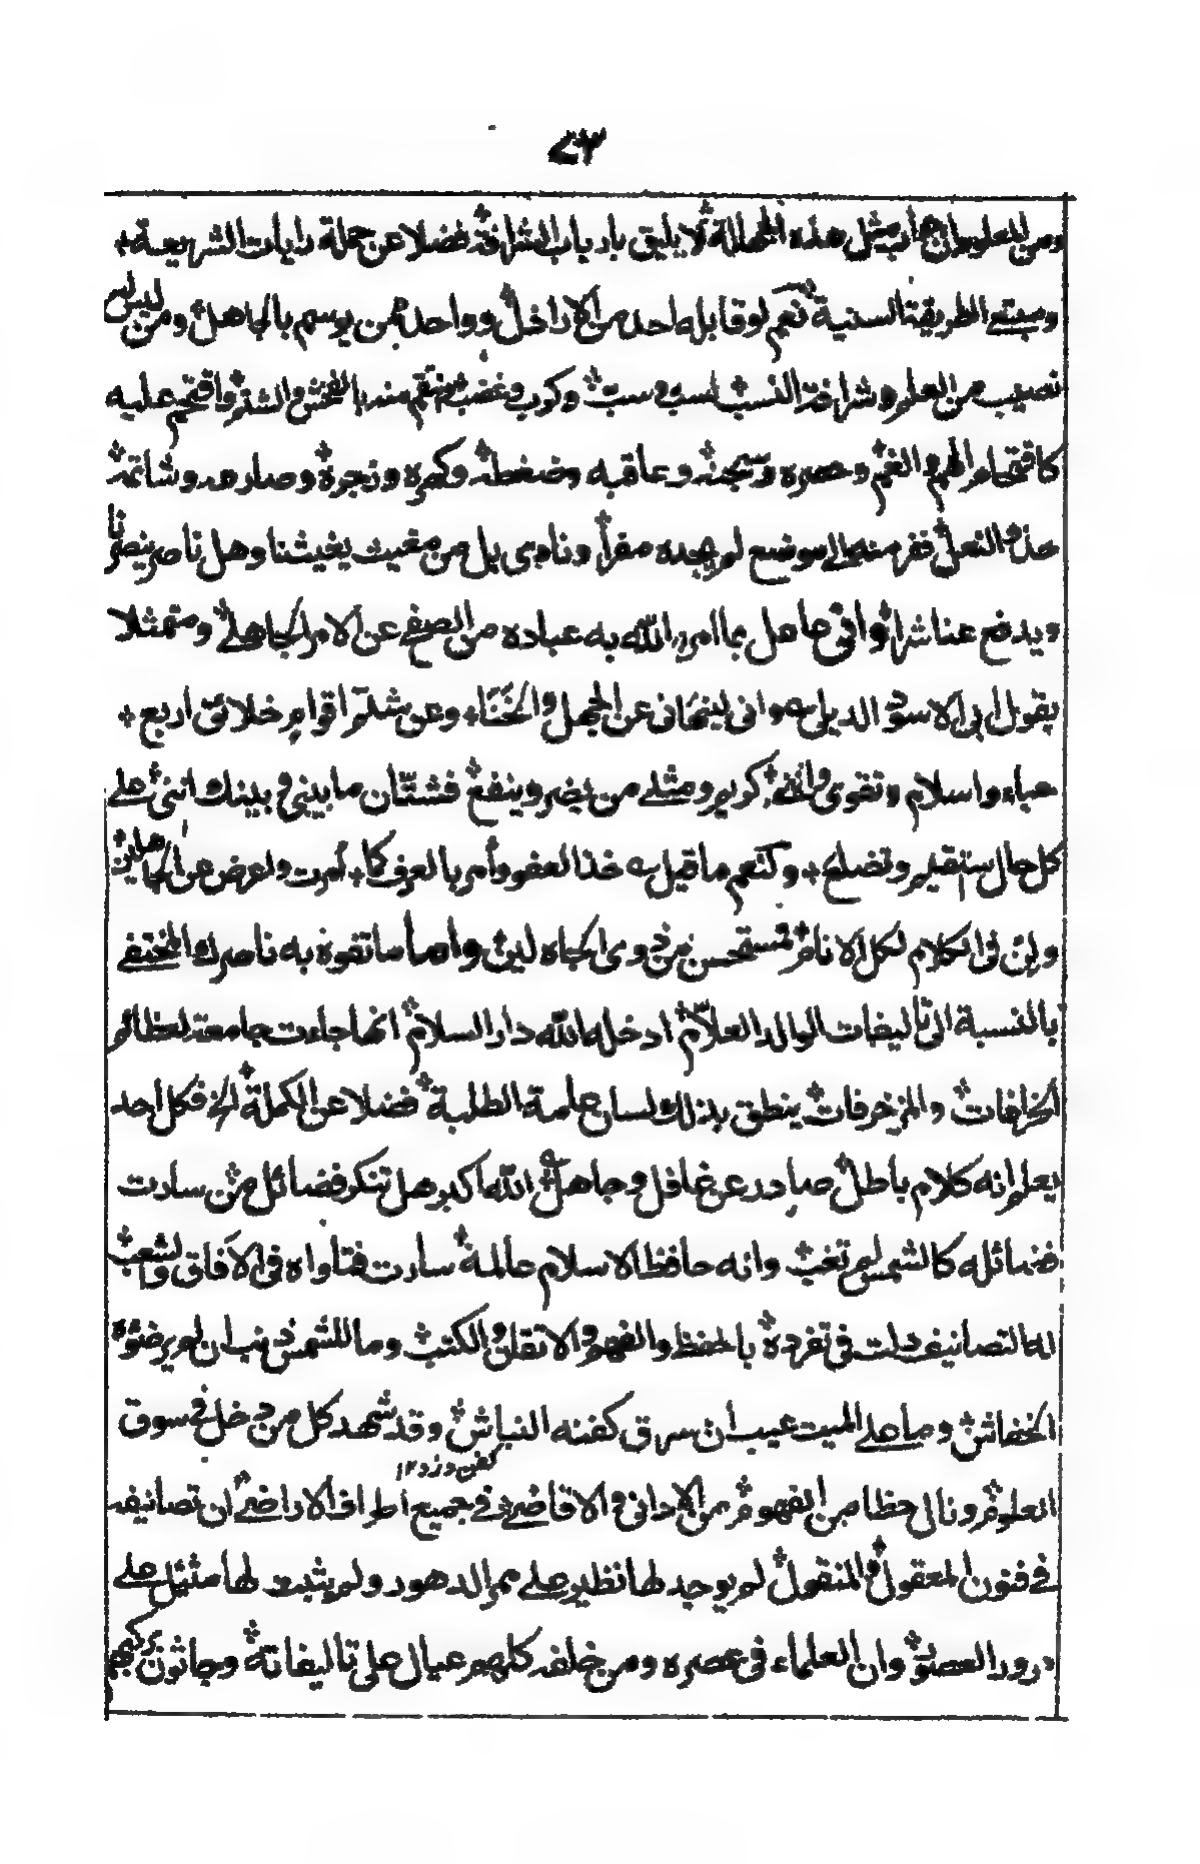 ٤٣
ومن المعلوم ان مثل هذه لا يليق بارباب الشرافة فضلا عن حملة رايات الشريعة
الطريقة السنية نعم لو قابله احد من الاراذل وواحد ممن يوسم بالجاهل ومن ليس له
نصيب من العلم وشرافة النسب لسب وسب وكرب وغضب منتقم منه بالفحش والشتم واقتحم عليه
كاقتحام الهم والغم وحصره وسجنه وعاقبه وضغطه وكهره وزجره وصار
ففر منه الى موضع لم يجده مفرا ونادى بل من مغيث يغيثنا وهل ناصر ينصرنا
ويدفع عنا شر انواق جاهل بما امر الله به عباده من الصفح عن الامر الجاهلي ومتمثلا
بقول ابي الاسود الديلي وانى ليثنانى عن الجهل والخنا وعن شتم اقوام خلائق اربع
حياء واسلام وتقوى واننى كريم ومثلي من يضر وينفع فشتان ما بيني وبينك اننى على
كل حال استقيم وتضلع وكنعم ما قيل خذ العفو وأمر بالعرف كما أمرت واعرض عن الجاهلين
ولن فى الكلام لكل الانام فمستحسن من ذوى الجاه لين واما ما تفوه به ناصرك المختفي
بالنسبة الى تاليفات الوالد العلام ادخله الله دار السلام انها جاءت جامعة لعظائم
الخرافات والمزخرفات ينطق بذلك لسان علمة الطلبة فضلا عن الكملة الخ فكل احد
يعلم انه كلام باطل صادر عن غافل وجاهل الله اكبر هل تنكر فضائل من سارت
فضائله كالشمس لم تغب وانه حافظ الاسلام عالمه سارت فتاواه فى الآفاق والشعب
له التصانيف دلت فى تفرده بالحفظ والفهم والاتقان والكتب وما للشمس ذنب ان لم ير ضوءه
الخفاش وما على الميت عيب أن سرق كفنه النباش وقد شهد كل من دخل في سوق
كفن دزد ١٢
العلوم ونال حظا من الفهوم من الادانى والاقاصي في جميع اطراف الاراضي ان تصانيفه
في فنون المعقول والمنقول لم يوجد لها نظير على ممر الدهور ولم يثبت لها مثيل على
مرور العصور وان العلماء فى عصره ومن خلفه كلهم عيال على تاليفاته وجاثون